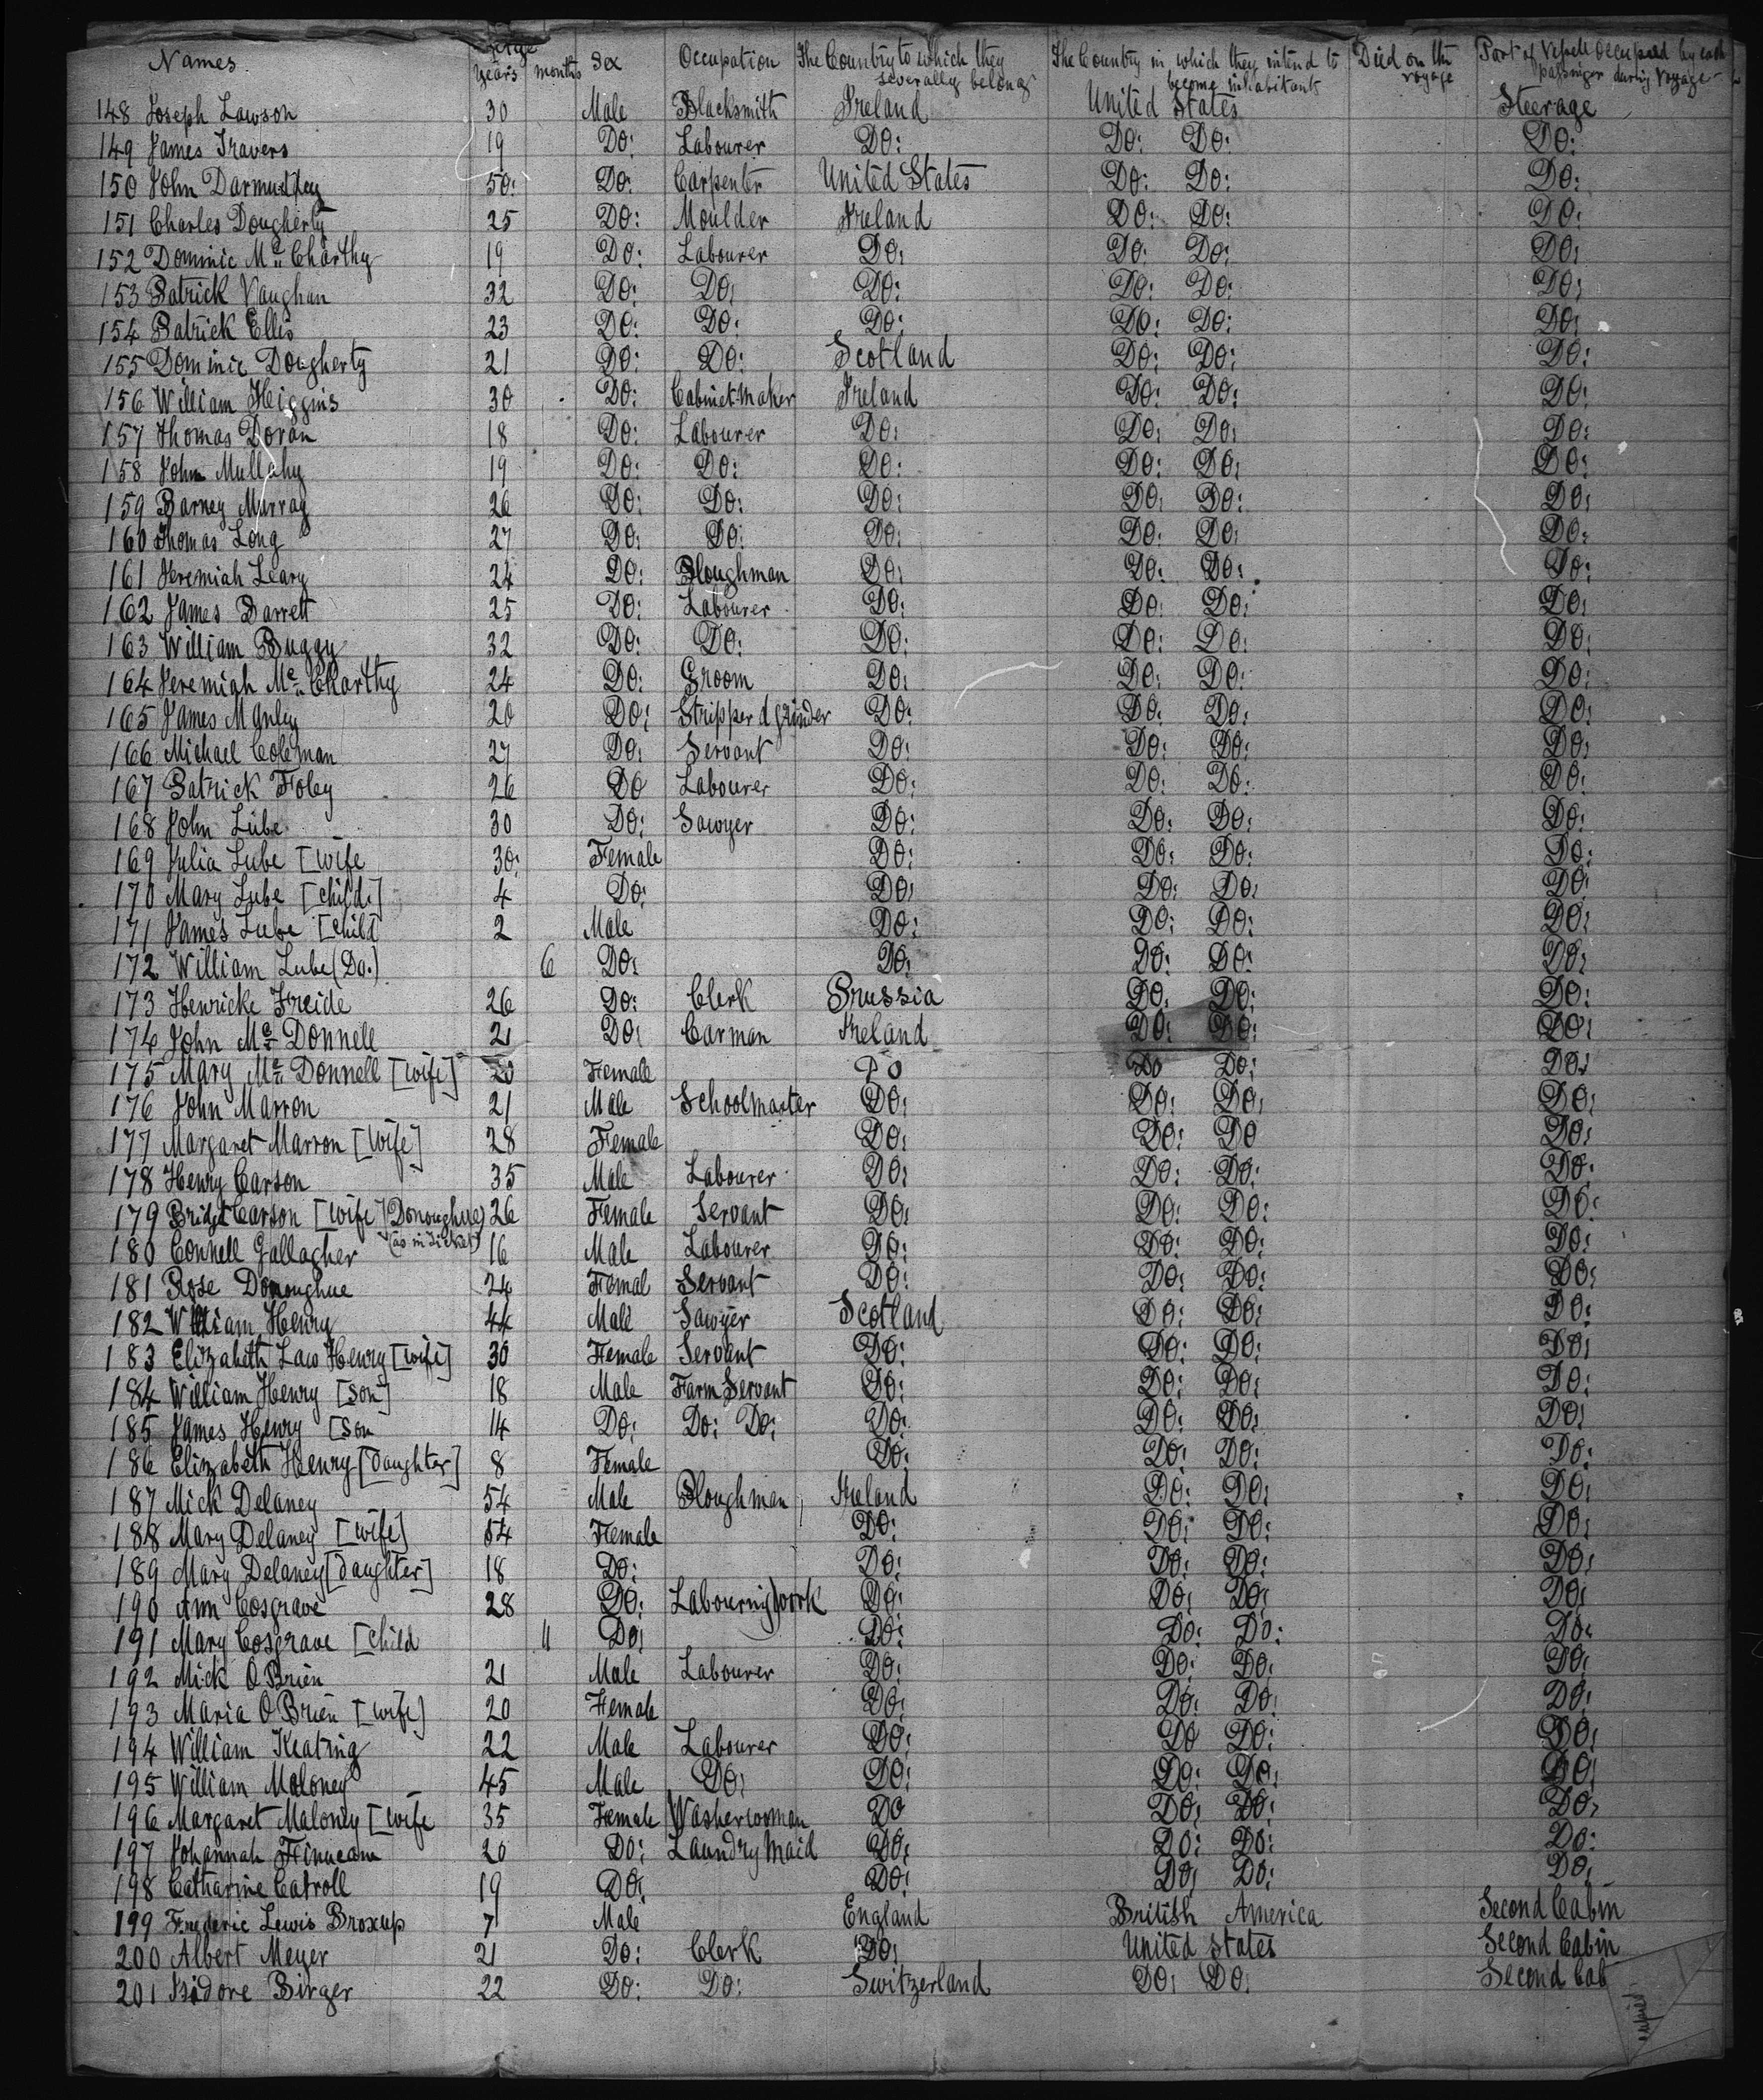 Names Age years months Sex Occupation The Country to which they severally belong The Country in which they intend to become inhabitants Died on the voyage Part of Vessel Occupied by each passenger during Voyage
148 Joseph Lawson 30 Male Blacksmith Ireland United States Steerage
149 James Travers 19 Do: Labourer Do: Do: Do: Do:
150 John 50: Do: Carpenter United States Do: Do: Do:
151 Charles Dougherty 25 Do: Moulder Ireland Do: Do: Do:
152 Dominic Mc Charthy 19 Do: Labourer Do: Do: Do: Do:
153 Patrick Vaughan 32 Do: Do: Do: Do: Do: Do:
154 Patrick Ellis 23 Do: Do: Do: Do: Do: Do:
155 Dominic Dougherty 21 Do: Do: Scotland Do: Do: Do:
156 William Higgins 30 Do: Cabinet Maker Ireland Do: Do: Do:
157 Thomas Doran 18 Do: Labourer Do: Do: Do: Do:
158 John Mullahy 19 Do: Do: Do: Do: Do: Do:
159 Barney Murray 26 Do: Do: Do: Do: Do: Do:
160 Thomas Long 27 Do: Do: Do: Do: Do: Do:
161 Jeremiah Leary 24 Do: Ploughman Do: Do: Do: Do:
162 James Barrett 25 Do: Labourer Do: Do: Do: Do:
163 William Buggy 32 Do: Do: Do: Do: Do: Do:
164 Jeremiah Mc Charthy 24 Do: Groom Do: Do: Do: Do:
165 James Manley 20 Do: Stripper & grinder Do: Do: Do: Do:
166 Michael Coleman 27 Do: Servant Do: Do: Do: Do:
167 Patrick Foley 26 Do Labourer Do: Do: Do: Do:
168 John Lube 30 Do: Sawyer Do: Do: Do: Do:
169 Julia Lube [wife 30: Female Do: Do: Do: Do:
170 Mary Lube [child.] 4 Do: Do: Do: Do: Do:
171 James Lube [child] 2 Male Do: Do: Do: Do:
172 William Lube (Do.) 6 Do: Do: Do: Do: Do:
173 Henricke Freide 26 Do: Clerk Prussia Do: Do: Do:
174 John Mc Donnell 21 Do: Carman Ireland Do: Do: Do:
175 Mary Mc Donnell [wife] 20 Female Do Do Do: Do:
176 John Marron 21 Male Schoolmaster Do: Do: Do: Do:
177 Margaret Marron [wife] 28 Female Do: Do: Do Do:
178 Henry Carson 35 Male Labourer Do: Do: Do: Do:
179 Bridget Carson [wife] (Donoughue) 26 Female Servant Do: Do: Do: Do:
(as in Ticket)
180 Connell Gallagher 16 Male Labourer Do: Do: Do: Do:
181 Rose Donoughue 24 Femal Servant Do: Do: Do: Do:
182 William Henry 44 Male Sawyer Scotland Do: Do: Do:
183 Elizabeth Law Henry [wife] 30 Female Servant Do: Do: Do: Do:
184 William Henry [son] 18 Male Farm Servant Do: Do: Do: Do:
185 James Henry [son 14 Do: Do: Do: Do: Do: Do: Do:
186 Elizabeth Henry [daughter] 8 Female Do: Do: Do: Do:
187 Mick Delaney 54 Male Ploughman Ireland Do: Do: Do:
188 Mary Delaney [wife] 54 Female Do: Do: Do: Do:
189 Mary Delaney [daughter] 18 Do: Do: Do: Do: Do:
190 Ann Cosgrave 28 Do: Labouring work Do: Do: Do: Do:
191 Mary Cosgrave [child 11 Do: Do: Do: Do: Do:
192 Mick O Brien 21 Male Labourer Do: Do: Do: Do:
193 Maria O Brien [wife] 20 Female Do: Do: Do: Do:
194 William Keating 22 Male Labourer Do: Do Do: Do:
195 William Maloney 45 Male Do: Do: Do: Do: Do:
196 Margaret Maloney [wife 35 Female Washerwoman Do Do: Do: Do:
197 Johannah Finucane 20 Do: Laundry Maid Do: Do: Do: Do:
198 Catharine Catroll 19 Do: Do: Do: Do: Do:
199 Frederic Lewis Broxup 7 Male England British America Second Cabin
200 Albert Meyer 21 Do: Clerk Do: United States Second Cabin
201 Isidore Birger 22 Do: Do: Switzerland Do: Do: Second Cab